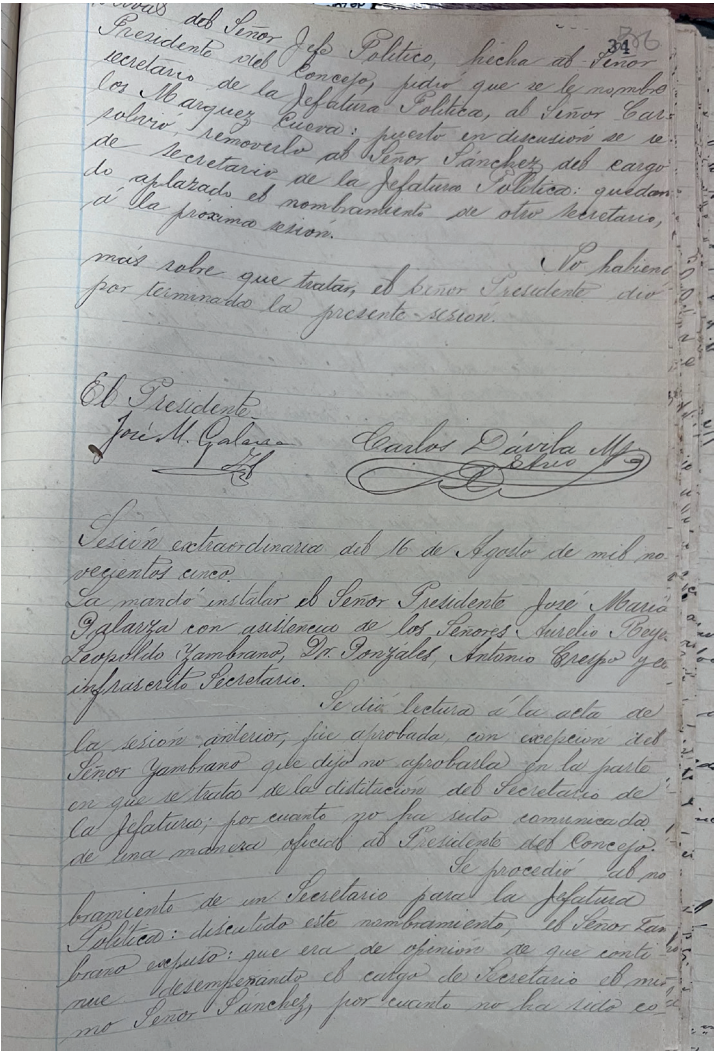 34
36
del Señor Jefe Político, hecha al Señor
Presidente del Concejo, pidió que se le nombre
secretario de la Jefatura Política, al Señor Car-
los Marquez Cueva: puesto en discusión se re-
solvió, removerlo al Señor Sánchez del cargo
de secretario de la Jefatura Política: quedan-
do aplazado el nombramiento de otro secretario,
á la próxima sesión.
No habiend
más sobre que tratar, el Señor Presidente dio
por terminada la presente sesión.
El Presidente
José M. Galarza
Carlos Dávila M.
Srio
Sesión extraordinaria del 16 de Agosto de mil no-
vecientos cinco.
La mandó instalar el Señor Presidente José María
Galarza con asistencia de los Señores Aurelio Reyes
Leopoldo Zambrano, Dr. Gonzales, Antonio Crespo y el
infrascrito Secretario.
Se dió lectura á la acta de
la sesión anterior, fúe aprobada, con excepción del
Señor Zambrano que dijo no aprobarla en la parte
en que se trata de la distitucion del Secretario de
la Jefatura; por cuanto no ha sido comunicada
de una manera oficial al Presidente del Concejo.
Se procedió al no
bramiento de un Secretario para la Jefatura
Política: discutido este nombramiento, el Señor Zam
brano expuso: que era de opinion de que conti
nue desempeñando el cargo de Secretario el mis
mo Señor Sánchez, por cuanto no ha sido co-